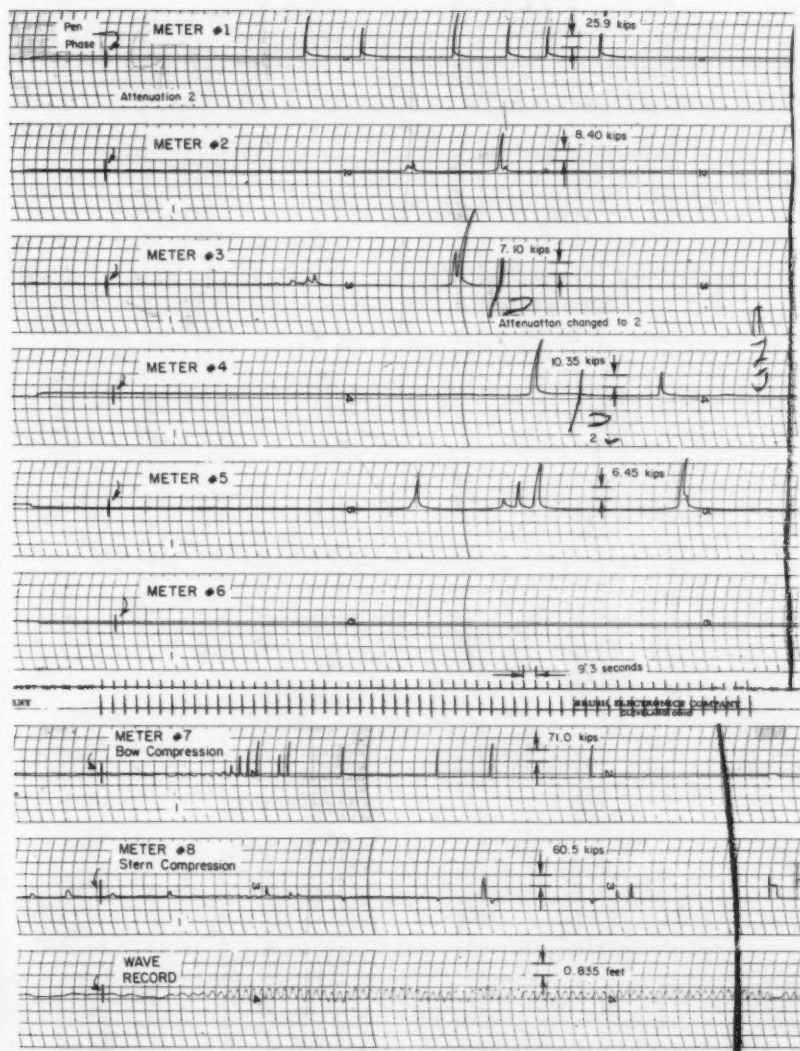 Pen
Phase
METER #1
25.9 kips
1
Attenuation 2
METER #2
8.40 kips
2
2
1
METER #3
7.10 kips
3
3
1
Attenuation changed to 2
METER #4
10.35 kips
4
4
1
2
METER #5
6.45 kips
5
5
1
METER #6
6
6
1
9.3 seconds
BRUSH ELECTRONICS COMPANY
CLEVELAND OHIO
METER #7
Bow Compression
71.0 kips
2
2
1
METER #8
Stern Compression
60.5 kips
3
3
1
WAVE
RECORD
0.835 feet
4
4